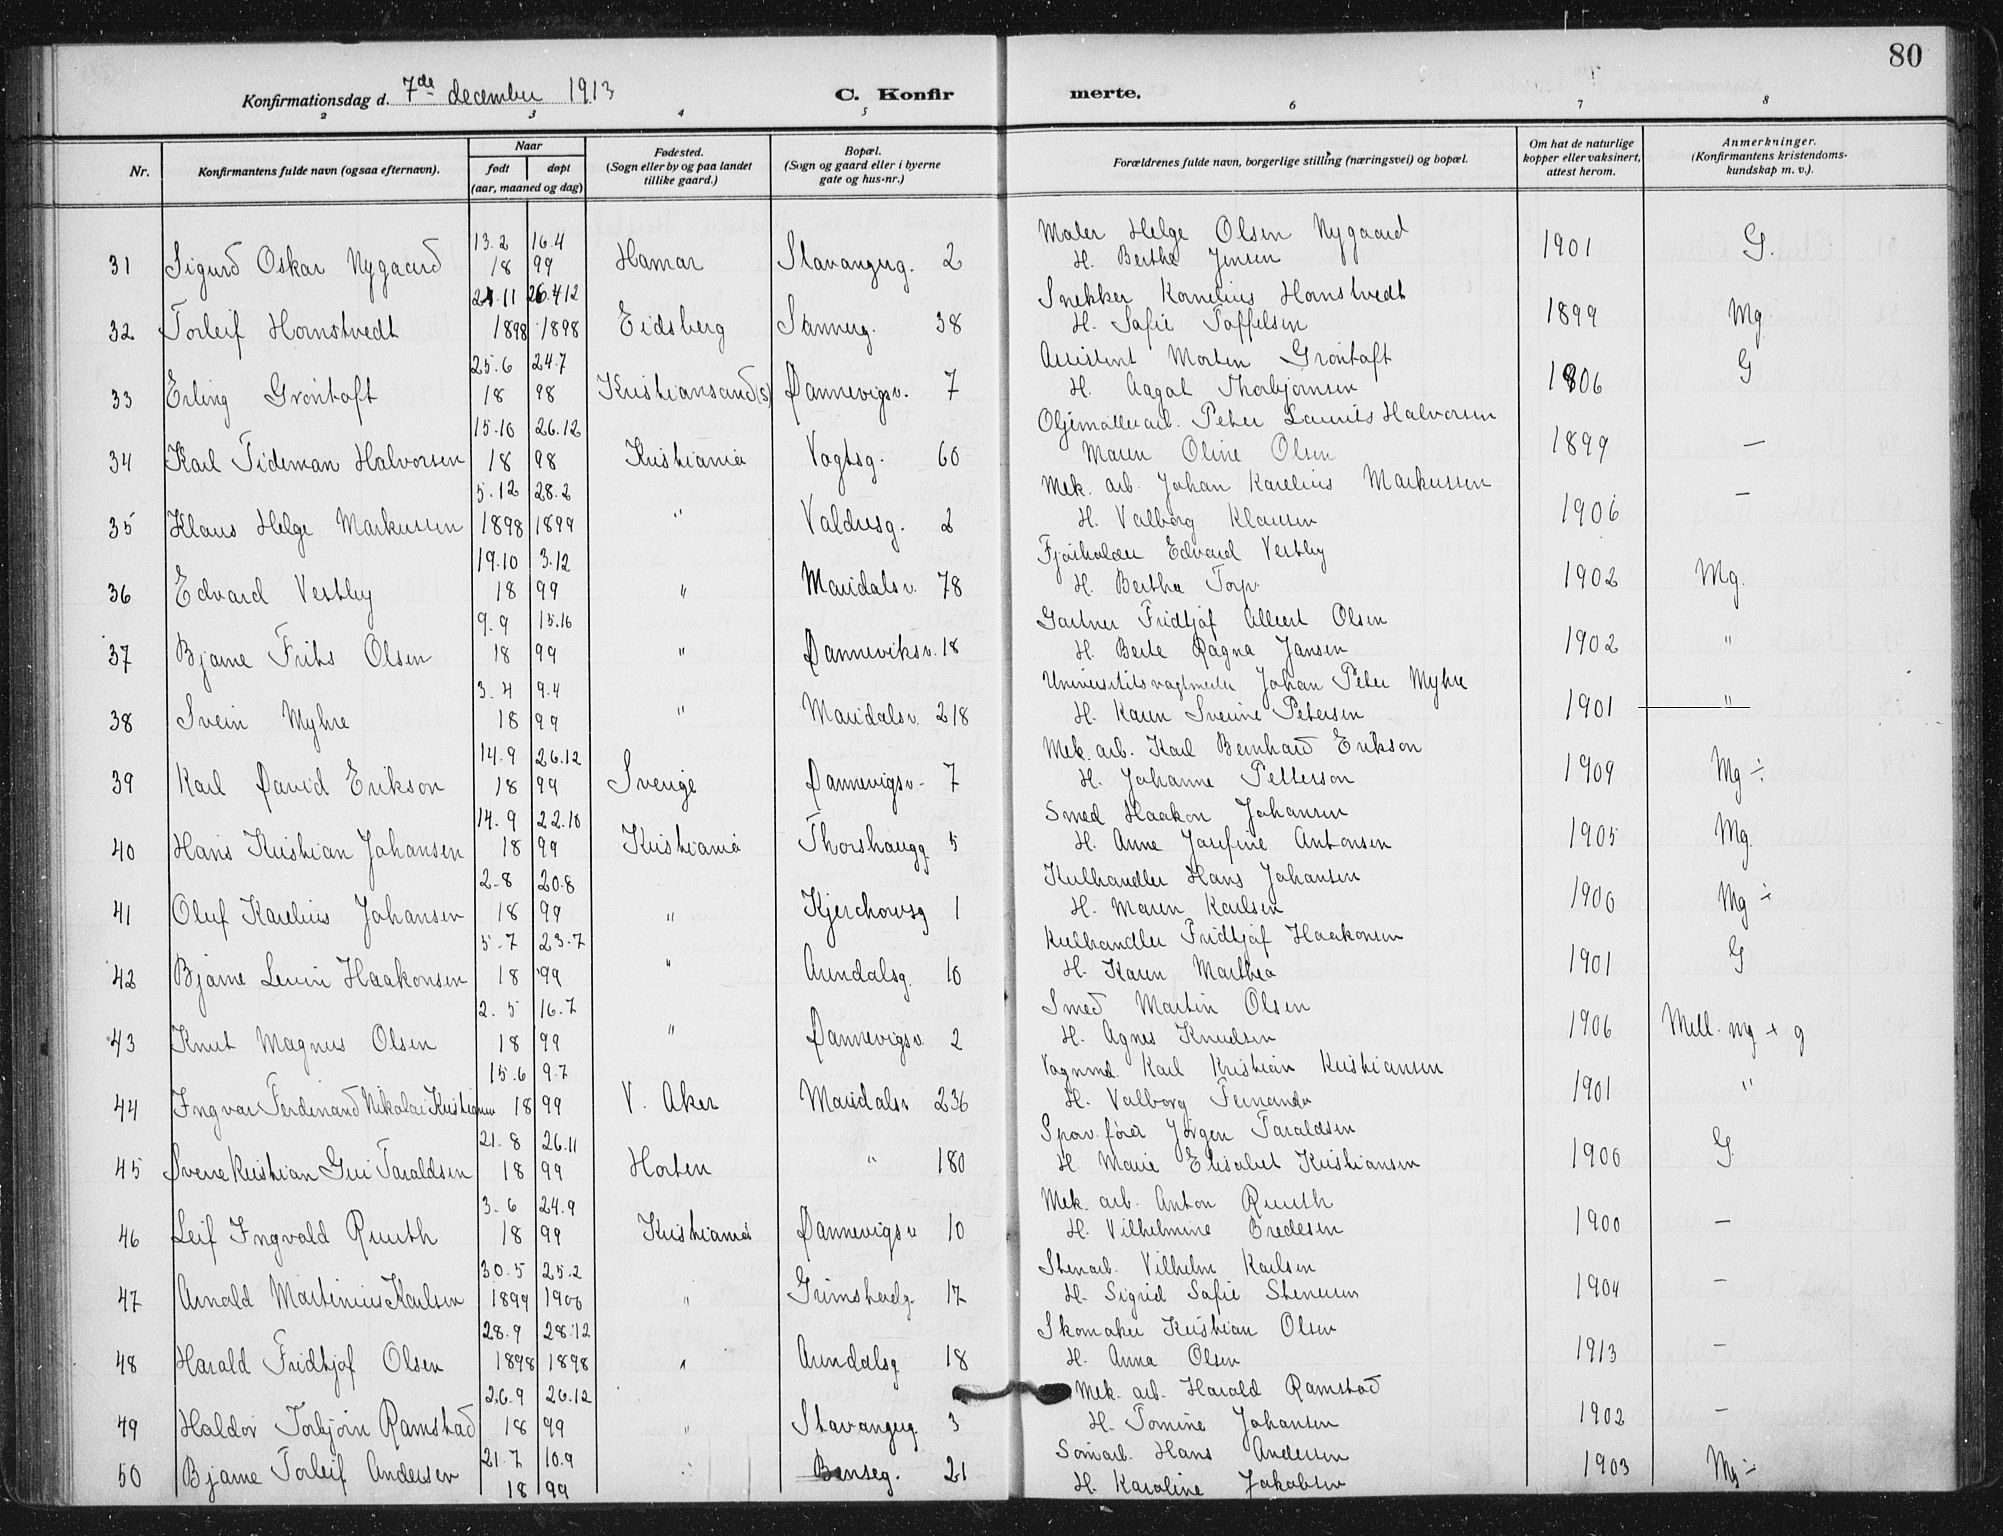 80
Konfirmationsdag d. 7de december 1913 C. Konfirmerte.
2 3 4 5 6 7 8
Nr. Konfirmantens fulde navn (ogsaa efternavn). Naar født døpt (aar, maaned og dag) Fødested. (Sogn eller by og paa landet tillike gaard.) Bopæl. (Sogn og gaard eller i byerne gate og hus-nr.) Forældrenes fulde navn, borgerlige stilling (næringsvei) og bopæl. Om hat de naturlige kopper eller vaksinert, attest herom. Anmerkninger. (Konfirmantens kristendoms-kundskap m. v.).
13.2 16.4 Maler Helge Olsen Nygaard
31 Sigurd Oskar Nygaard 18 99 Hamar Stavangerg. 2 H. Bertha Jensen 1901 G.
24.11 26.412 Snekker Kornelius Hornstvedt
32 Torleif Hornstvedt 1898 1898 Eidsberg Sannerg. 38 H. Sofie Toffelsen 1899 Mg
25.6 24.7 Assistent Morten Grøntoft
33 Erling Grøntoft 18 98 Kristiansand(S) Dannevigsv. 7 H. Aagot Thorbjørnsen 1906 G
15.10 26.12 Oljemøllearb. Peter Laurits Halvorsen
34 Karl Tideman Halvorsen 18 98 Kristiania Vogtsg. 60 Maren Oline Olsen 1899 —
5.12 28.2 Mek. arb. Johan Karelius Markussen
35 Klaus Helge Markussen 1898 1899 " Valdresg. 2 H. Valborg Klausen 1906 —
19.10 3.12 Edvard Vestby
36 Edvard Vestby 18 99 " Maridalsv. 78 H. Bertha Torp 1902 Mg.
9.9 15.10 Gartner Fridtjof Albert Olsen
37 Bjarne Frits Olsen 18 99 " Danneviksv. 18 H. Berte Ragna Jansen 1902 "
3.4 9.4 Universitetsvagtmester Johan Peter Myhre
38 Svein Myhre 18 99 " Maridalsv. 218 H. Karen Severine Petersen 1901 "
14.9 26.12 Mek. arb. Karl Bernhard Erikson
39 Karl David Erikson 18 99 Sverige Dannevigsv. 7 H. Johanne Petterson 1909 Mg ÷
14.9 22.10 Smed Haakon Johansen
40 Hans Kristian Johansen 18 99 Kristiania Thorshaugg. 5 H. Anne Josefine Antonsen 1905 Mg.
2.8 20.8 Kulhandler Hans Johansen
41 Oluf Karelius Johansen 18 99 " Kjerchowsg 1 H. Maren Karlsen 1906 Mg ÷
5.7 23.7 Kulhandler Fridtjof Haakonsen
42 Bjarne Levin Haakonsen 18 99 " Arendalsg. 10 H. Karen Marthea 1901 G
2.5 16.7 Smed Martin Olsen
43 Knut Magnus Olsen 18 99 " Dannevigsv. 2 H. Agnes Knudsen 1906 Mell. mg + g
15.6 9.7 Vognmd. Karl Kristian Kristiansen
44 Ingvar Ferdinand Nikolai Kristiansen 18 99 V. Aker Maridalsv 236 H. Valborg Fernanda 1901 "
21.8 26.11 Sporv. fører Jørgen Taraldsen
45 Svene Kristian Gui Taraldsen 18 99 Horten " 180 H. Marie Elisabet Kristiansen 1906 G.
3.6 24.9 Mek. arb. Anton Ruuth
46 Leif Ingvald Ruuth 18 99 Kristiania Dannevigsv 10 H. Vilhelmine Bredesen 1900 —
30.5 25.2 Stenarb. Vilhelm Karlsen
47 Arnold Martinius Karlsen 1899 1900 " Grimstadg. 17 H. Sigrid Sofie Stenersen 1904 —
28.9 28.12 Skomaker Kristian Olsen
48 Harald Fridtjof Olsen 1898 1898 " Arendalsg 18 H. Anna Olsen 1913 —
26.9 26.12 Mek. arb. Harald Ramstad
49 Haldor Torbjørn Ramstad 18 99 " Stavangerg. 3 H. Tomine Johansen 1902 —
21.7 10.9 Hans Andersen
50 Bjarne Torleif Andersen 18 99 " Benseg. 21 H. Karoline Jakobsen 1903 Mg ÷